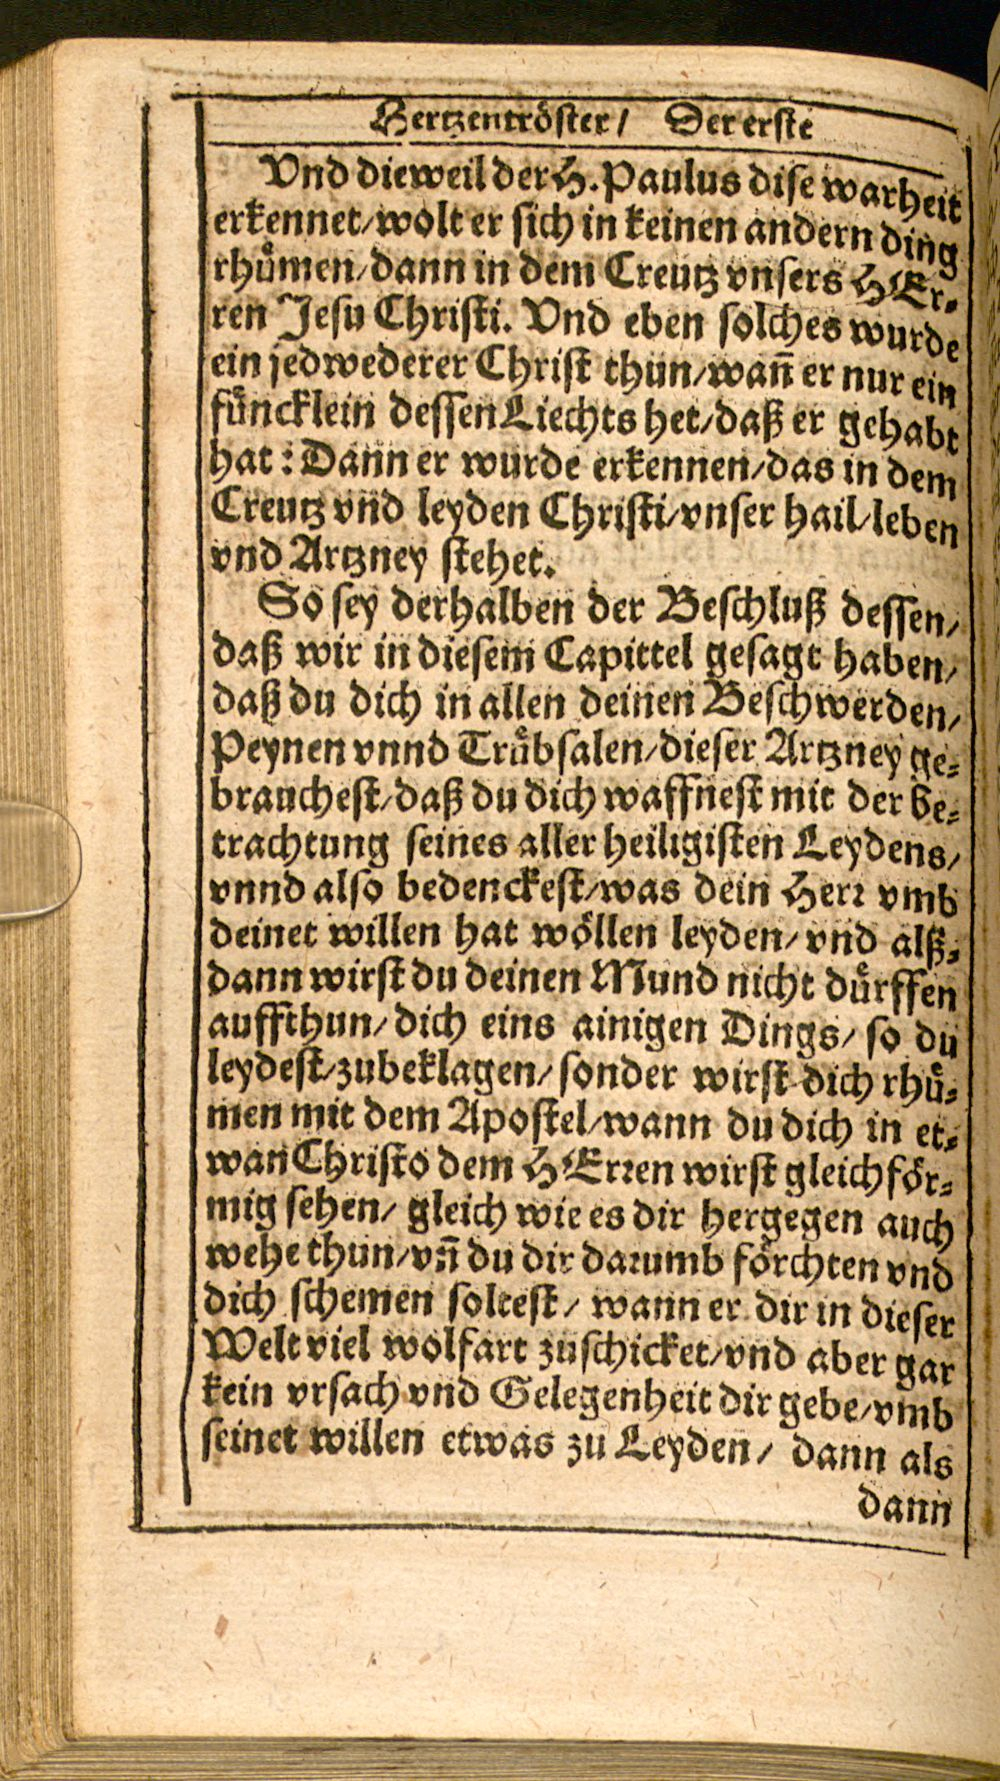 Hertzentröster/ Der erste
Vnd dieweil der H. Paulus dise warheit
erkennet/wolt er sich in keinen andern ding
rhuͤmen/dann in dem Creutz vnsers HEr⸗
ren Jesu Christi. Vnd eben solches wurde
ein jedwederer Christ thun/wañ er nur ein
fuͤncklein dessen Liechts het/daß er gehabt
hat: Dann er wurde erkennen/das in dem
Creutz vnd leyden Christi/vnser hail/leben
vnd Artzney stehet.
So sey derhalben der Beschluß dessen/
daß wir in diesem Capittel gesagt haben/
daß du dich in allen deinen Beschwerden/
Peynen vnnd Truͤbsalen/dieser Artzney ge⸗
brauchest/daß du dich waffnest mit der be⸗
trachtung seines aller heiligisten Leydens/
vnnd also bedenckest/was dein Herr vmb
deinet willen hat woͤllen leyden/vnd alß⸗
dann wirst du deinen Mund nicht duͤrffen
auffthun/dich eins ainigen Dings/so du
leydest/zubeklagen/sonder wirst dich rhuͤ⸗
men mit dem Apostel/wann du dich in et⸗
wan Christo dem HErren wirst gleichfoͤr⸗
mig sehen/gleich wie es dir hergegen auch
wehe thun/vñ du dir darumb foͤrchten vnd
dich schemen soltest/wann er dir in dieser
Welt viel wolfart zuschicket/vnd aber gar
kein vrsach vnd Gelegenheit dir gebe/vmb
seinet willen etwas zu Leyden/dann als
dann